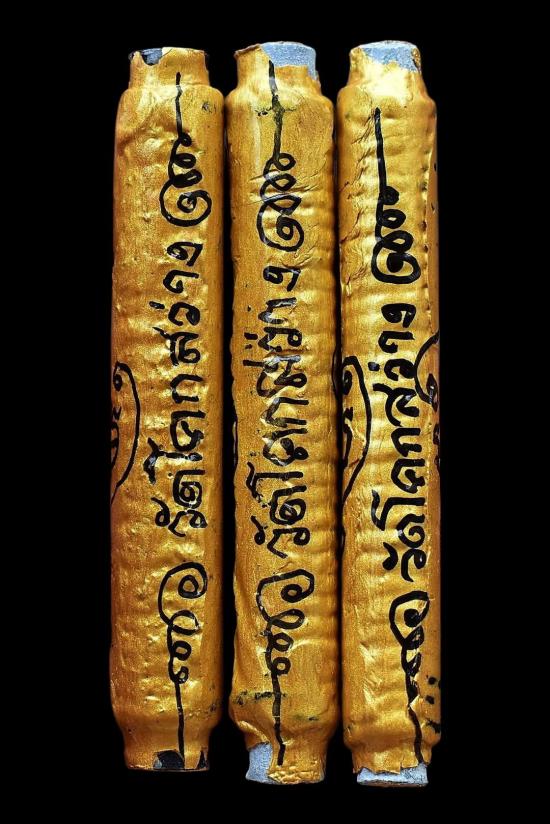 วัดโคกสว่าง
วัดโคกสว่าง
วัดโคกสว่าง